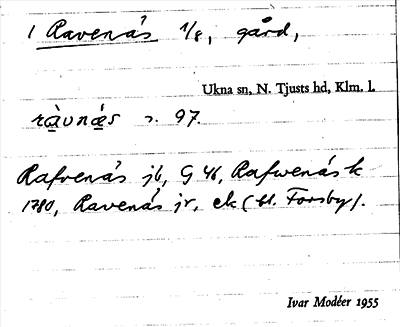 1 Ravenäs 1/8, gård,
Ukna sn, N. Tjusts hd, Klm. l.
ràvnás s. 97.
Rafvenäs jb, G 46, Rafwenäs k
1780, Ravenäs jr, ek (bl. Forsby).
Ivar Modéer 1955